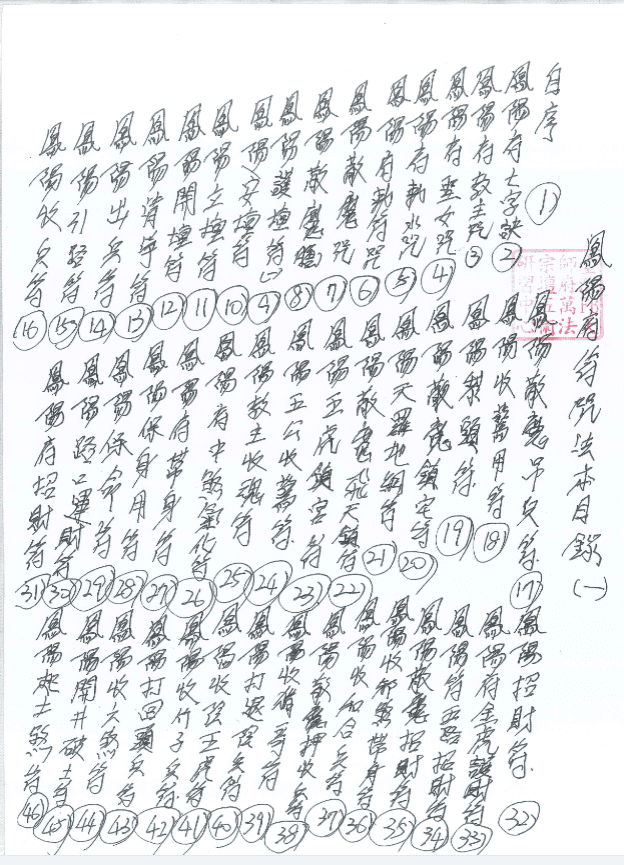 鳳陽府符咒法本目錄(一)
自序 ①
鳳陽府七字訣 ②
鳳陽府教主咒 ③
鳳陽府聖女咒 ④
鳳陽府敕水咒 ⑤
鳳陽府敕符咒 ⑥
鳳陽敵魔咒 ⑦
鳳陽敵魔 ⑧
鳳陽護壇符(一) ⑨
鳳陽安壇符 ⑩
鳳陽立壇符 ⑪
鳳陽開壇符 ⑫
鳳陽符 ⑬
鳳陽出兵符 ⑭
鳳陽引路符 ⑮
鳳陽收兵符 ⑯
鳳陽敵魔吊兵符 ⑰
鳳陽收驚用符 ⑱
鳳陽祭頭符 ⑲
鳳陽敵魔鎮宅符 ⑳
鳳陽天羅地網符 ㉑
鳳陽敵魔飛天鎮符 ㉒
鳳陽五虎鎮宮符 ㉓
鳳陽五公收驚符 ㉔
鳳陽教主收魂符 ㉕
鳳陽府中煞化符 ㉖
鳳陽府帶身符 ㉗
鳳陽保身用符 ㉘
鳳陽保命符 ㉙
鳳陽路口運財符 ㉚
鳳陽府招財符 ㉛
鳳陽招財符 ㉜
鳳陽府金虎護財符 ㉝
鳳陽符五路招財符 ㉞
鳳陽敵魔招財符 ㉟
鳳陽收邪煞帶身符 ㊱
鳳陽收和合兵符 ㊲
鳳陽敵魔押收兵符 ㊳
鳳陽收符
鳳陽打退陰兵符 ㊴
鳳陽收陰王虎符 ㊵
鳳陽收竹子兵符 ㊶
鳳陽打回頭兵符 ㊷
鳳陽收六煞符 ㊸
鳳陽開井破土符 ㊹ ㊺
鳳陽起土煞符 ㊻
師府萬法
宗壇五術